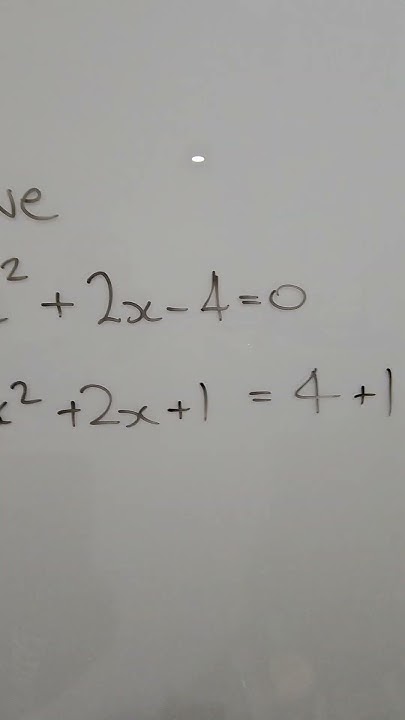 ve
² + 2x - 4 = 0
x² + 2x + 1 = 4 + 1